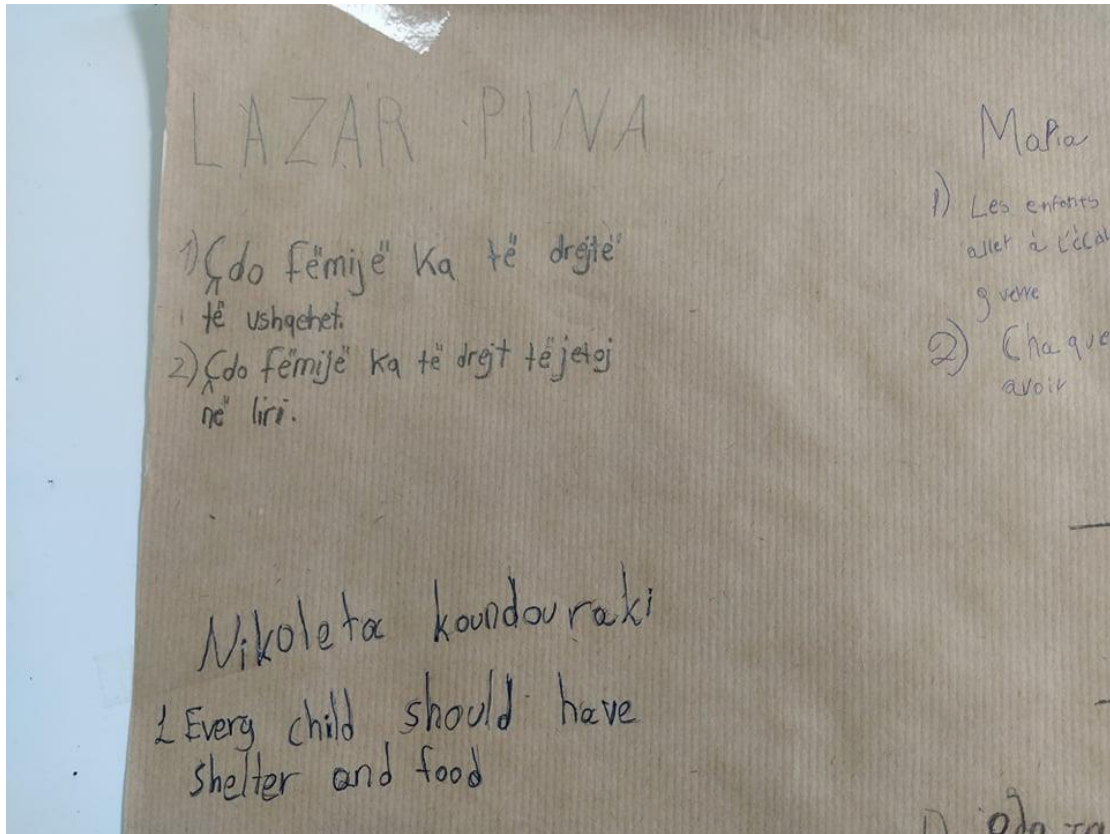 LAZAR PINA
1) Çdo fëmijë ka të drejtë
të ushqehet.
2) Çdo fëmijë ka të drejt të jetoj
në liri.
Nikoleta koundouraki
1 Every child should have
shelter and food
Μαρία
1) Les enfants
aller à l'école
guerre
2) Chaque
avoir